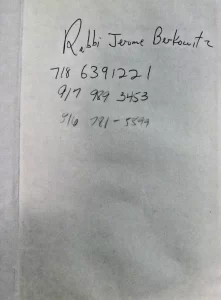 Rabbi Jerome Berkowitz
718 6391221
917 989 3453
516 791-5399